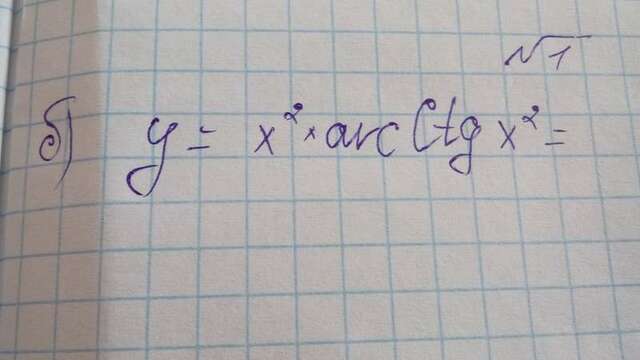 √1
б) y = x² · arcctg x² =